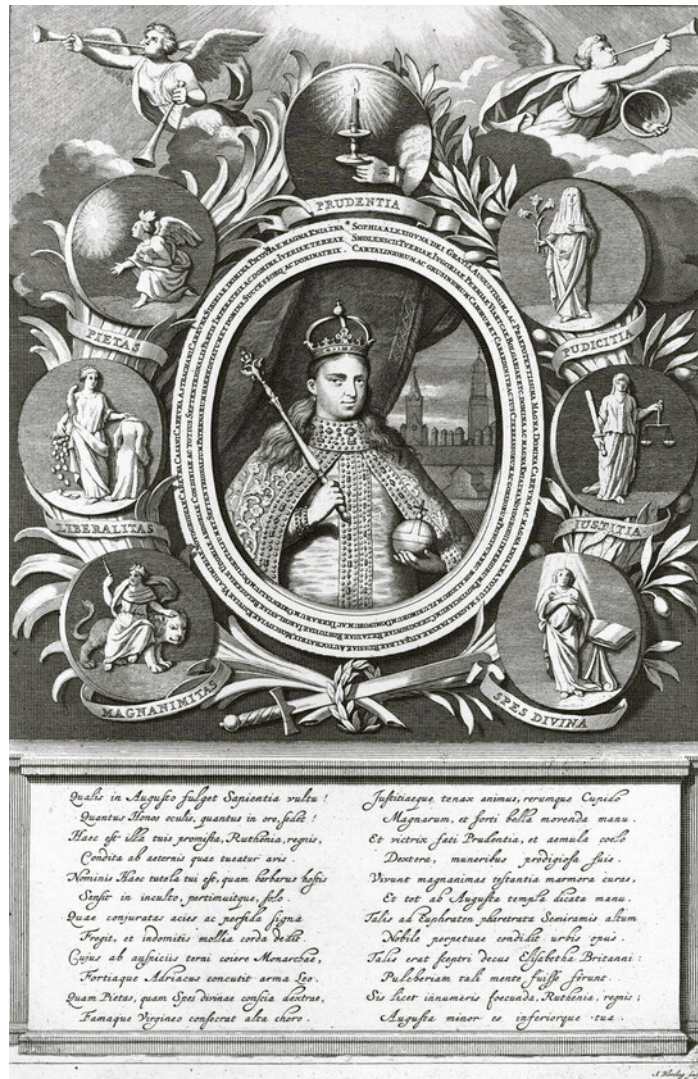 PRUDENTIA
SOPHIA ALEXIOVNA DEI GRATIA AUGUSTISSIMA AC PRAEPOTENTISSIMA MAGNA DOMINA CAREVNA AC MAGNA
PIETAS
PUDICITIA
LIBERALITAS
JUSTITIA
MAGNANIMITAS
SPES DIVINA
Qualis in Auguſto fulget Sapientia vultu!
Quantus Honos oculis, quantus in ore, ſedet!
Haec eſt illa tuis promiſſa, Ruthenia, regnis,
Condita ab aeternis quae tueatur avis.
Nominis Haec tutela tui eſt, quam barbarus hoſtis
Senſit in inculto, pertimuitque, ſolo.
Quae conjuratas acies ac perfida ſigna
Fregit, et indomitis mollia corda dedit.
Cujus ab auſpiciis terni coiere Monarchae,
Fortiaque Adriacus concutit arma Leo.
Quam Pietas, quam Spes divinae conſcia dextrae,
Famaque Virgineo conſecrat alta choro.
Juſtitiaeque tenax animus, rerumque Cupido
Magnarum, et forti bella movenda manu.
Et victrix fati Prudentia, et aemula coelo
Dextera, muneribus prodigioſa ſuis.
Vivunt magnanimas teſtantia marmora curas,
Et tot ab Auguſta templa dicata manu.
Talis ad Euphraten pharetrata Semiramis altum
Nobile perpetuae condidit urbis opus.
Talis erat ſceptri decus Eliſabetha Britanni:
Pulcheriam tali mente fuiſſe ferunt.
Sis licet innumeris foecunda, Ruthenia, regnis;
Auguſta minor es inferiorque tua.